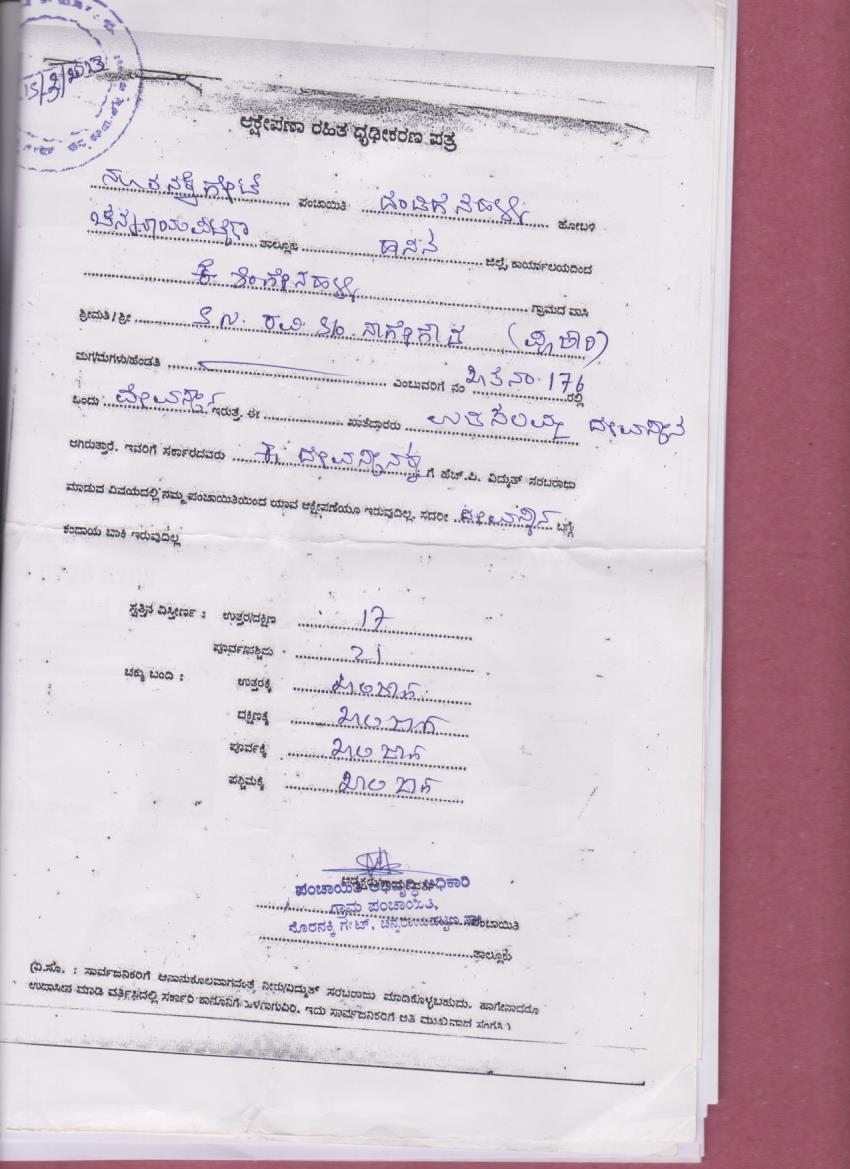 15/3/2023
ಆಕ್ಷೇಪಣಾ ರಹಿತ ಧೃಢೀಕರಣ ಪತ್ರ
ನೊರನಕ್ಕಿಗೇಟ್ ಪಂಚಾಯಿತಿ ದಂಡಿಗನಹಳ್ಳಿ ಹೋಬಳಿ
ಚನ್ನರಾಯಪಟ್ಟಣ ತಾಲ್ಲೂಕು ಹಾಸನ ಜಿಲ್ಲೆ, ಕಾರ್ಯಾಲಯದಿಂದ
ಕೆ ಶಿಂಗೇನಹಳ್ಳಿ ಗ್ರಾಮದ ವಾಸಿ
ಶ್ರೀಮತಿ/ಶ್ರೀ ಎಸ್.ಎನ್. ರವಿ S/o ನಾಗೇಗೌಡ
ಮಗ/ಮಗಳು/ಹೆಂಡತಿ ಎಂಬುವರಿಗೆ ನಂ 176 ರಲ್ಲಿ
ಒಂದು ದೇವಸ್ಥಾನ ಇರುತ್ತೆ. ಈ ಖಾತೆದಾರರು ದೇವಸ್ಥಾನ
ಆಗಿರುತ್ತಾರೆ. ಇವರಿಗೆ ಸರ್ಕಾರದವರು ದೇವಸ್ಥಾನಕ್ಕೆ ಗೆ ಹೆಚ್.ಪಿ. ವಿದ್ಯುತ್ ಸರಬರಾಜು
ಮಾಡುವ ವಿಷಯದಲ್ಲಿ ನಮ್ಮ ಪಂಚಾಯಿತಿಯಿಂದ ಯಾವ ಆಕ್ಷೇಪಣೆಯೂ ಇರುವುದಿಲ್ಲ. ಸದರೀ ದೇವಸ್ಥಾನ ಬಗ್ಗೆ
ಕಂದಾಯ ಬಾಕಿ ಇರುವುದಿಲ್ಲ
ಸ್ವತ್ತಿನ ವಿಸ್ತೀರ್ಣ : ಉತ್ತರ/ದಕ್ಷಿಣ 17
ಪೂರ್ವ/ಪಶ್ಚಿಮ 21
ಚಕ್ಕು ಬಂದಿ : ಉತ್ತರಕ್ಕೆ ಖಾಲಿಜಾಗ
ದಕ್ಷಿಣಕ್ಕೆ ಖಾಲಿ ಜಾಗ
ಪೂರ್ವಕ್ಕೆ ಖಾಲಿ ಜಾಗ
ಪಶ್ಚಿಮಕ್ಕೆ ಖಾಲಿ ಜಾಗ
ಪಂಚಾಯಿತಿ ಅಭಿವೃದ್ಧಿ ಅಧಿಕಾರಿ
ಗ್ರಾಮ ಪಂಚಾಯಿತಿ,
ನೊರನಕ್ಕಿ ಗೇಟ್, ಚನ್ನರಾಯಪಟ್ಟಣ ತಾ॥ ಪಂಚಾಯಿತಿ
ತಾಲ್ಲೂಕು
(ವಿ.ಸೂ. : ಸಾರ್ವಜನಿಕರಿಗೆ ಅನಾನುಕೂಲವಾಗದಂತೆ ನೀರು/ವಿದ್ಯುತ್ ಸರಬರಾಜು ಮಾಡಿಕೊಳ್ಳಬಹುದು. ಹಾಗೇನಾದರೂ
ಉದಾಸೀನ ಮಾಡಿ ವರ್ತಿಸಿದಲ್ಲಿ ಸರ್ಕಾರಿ ಕಾನೂನಿಗೆ ಒಳಗಾಗುವಿರಿ. ಇದು ಸಾರ್ವಜನಿಕರಿಗೆ ಅತಿ ಮುಖ್ಯವಾದ ಸಂಗತಿ)